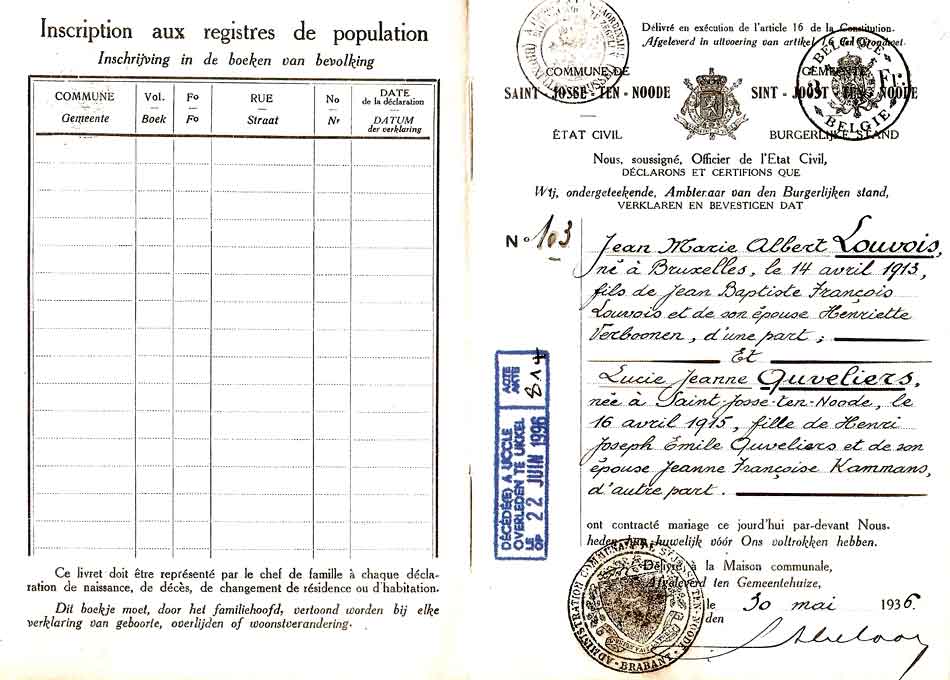 Inscription aux registres de population
Inschrijving in de boeken van bevolking
COMMUNE Vol. Fo RUE No DATE
de la déclaration
Gemeente Boek Fo Straat Nr DATUM
der verklaring
Ce livret doit être représenté par le chef de famille à chaque décla-
ration de naissance, de décès, de changement de résidence ou d'habitation.
Dit boekje moet, door het familiehoofd, vertoond worden bij elke
verklaring van geboorte, overlijden of woonstverandering.
Délivré en exécution de l'article 16 de la Constitution.
Afgeleverd in uitvoering van artikel 16 der Grondwet.
BELGIQUE
Fr.
BELGIE
COMMUNE DE GEMEENTE
SAINT-JOSSE-TEN-NOODE SINT-JOOST-TEN-NOODE
ÉTAT CIVIL BURGERLIJKE STAND
Nous, soussigné, Officier de l'Etat Civil,
DÉCLARONS ET CERTIFIONS QUE
Wij, ondergeteekende, Ambtenaar van den Burgerlijken stand,
VERKLAREN EN BEVESTIGEN DAT
No 103
Jean Marie Albert Louvois,
né à Bruxelles, le 14 avril 1913,
fils de Jean Baptiste François
Louvois et de son épouse Henriette
Verboonen, d'une part;
Et
Lucie Jeanne Quveliers,
née à Saint-Josse-ten-Noode, le
16 avril 1915, fille de Henri
Joseph Emile Quveliers et de son
épouse Jeanne Françoise Kammans,
d'autre part.
DÉCÉDÉ(E) A UCCLE
OVERLEDEN TE UKKEL
LE
OP 22 JUIN 1996
ACTE
AKTE 814
ont contracté mariage ce jourd'hui par-devant Nous.
heden hun huwelijk vóór Ons voltrokken hebben.
Délivré à la Maison communale,
Afgeleverd ten Gemeentehuize,
le 30 mai 1936.
den
ADMINISTRATION COMMUNALE DE ST JOSSE-TEN-NOODE
BRABANT